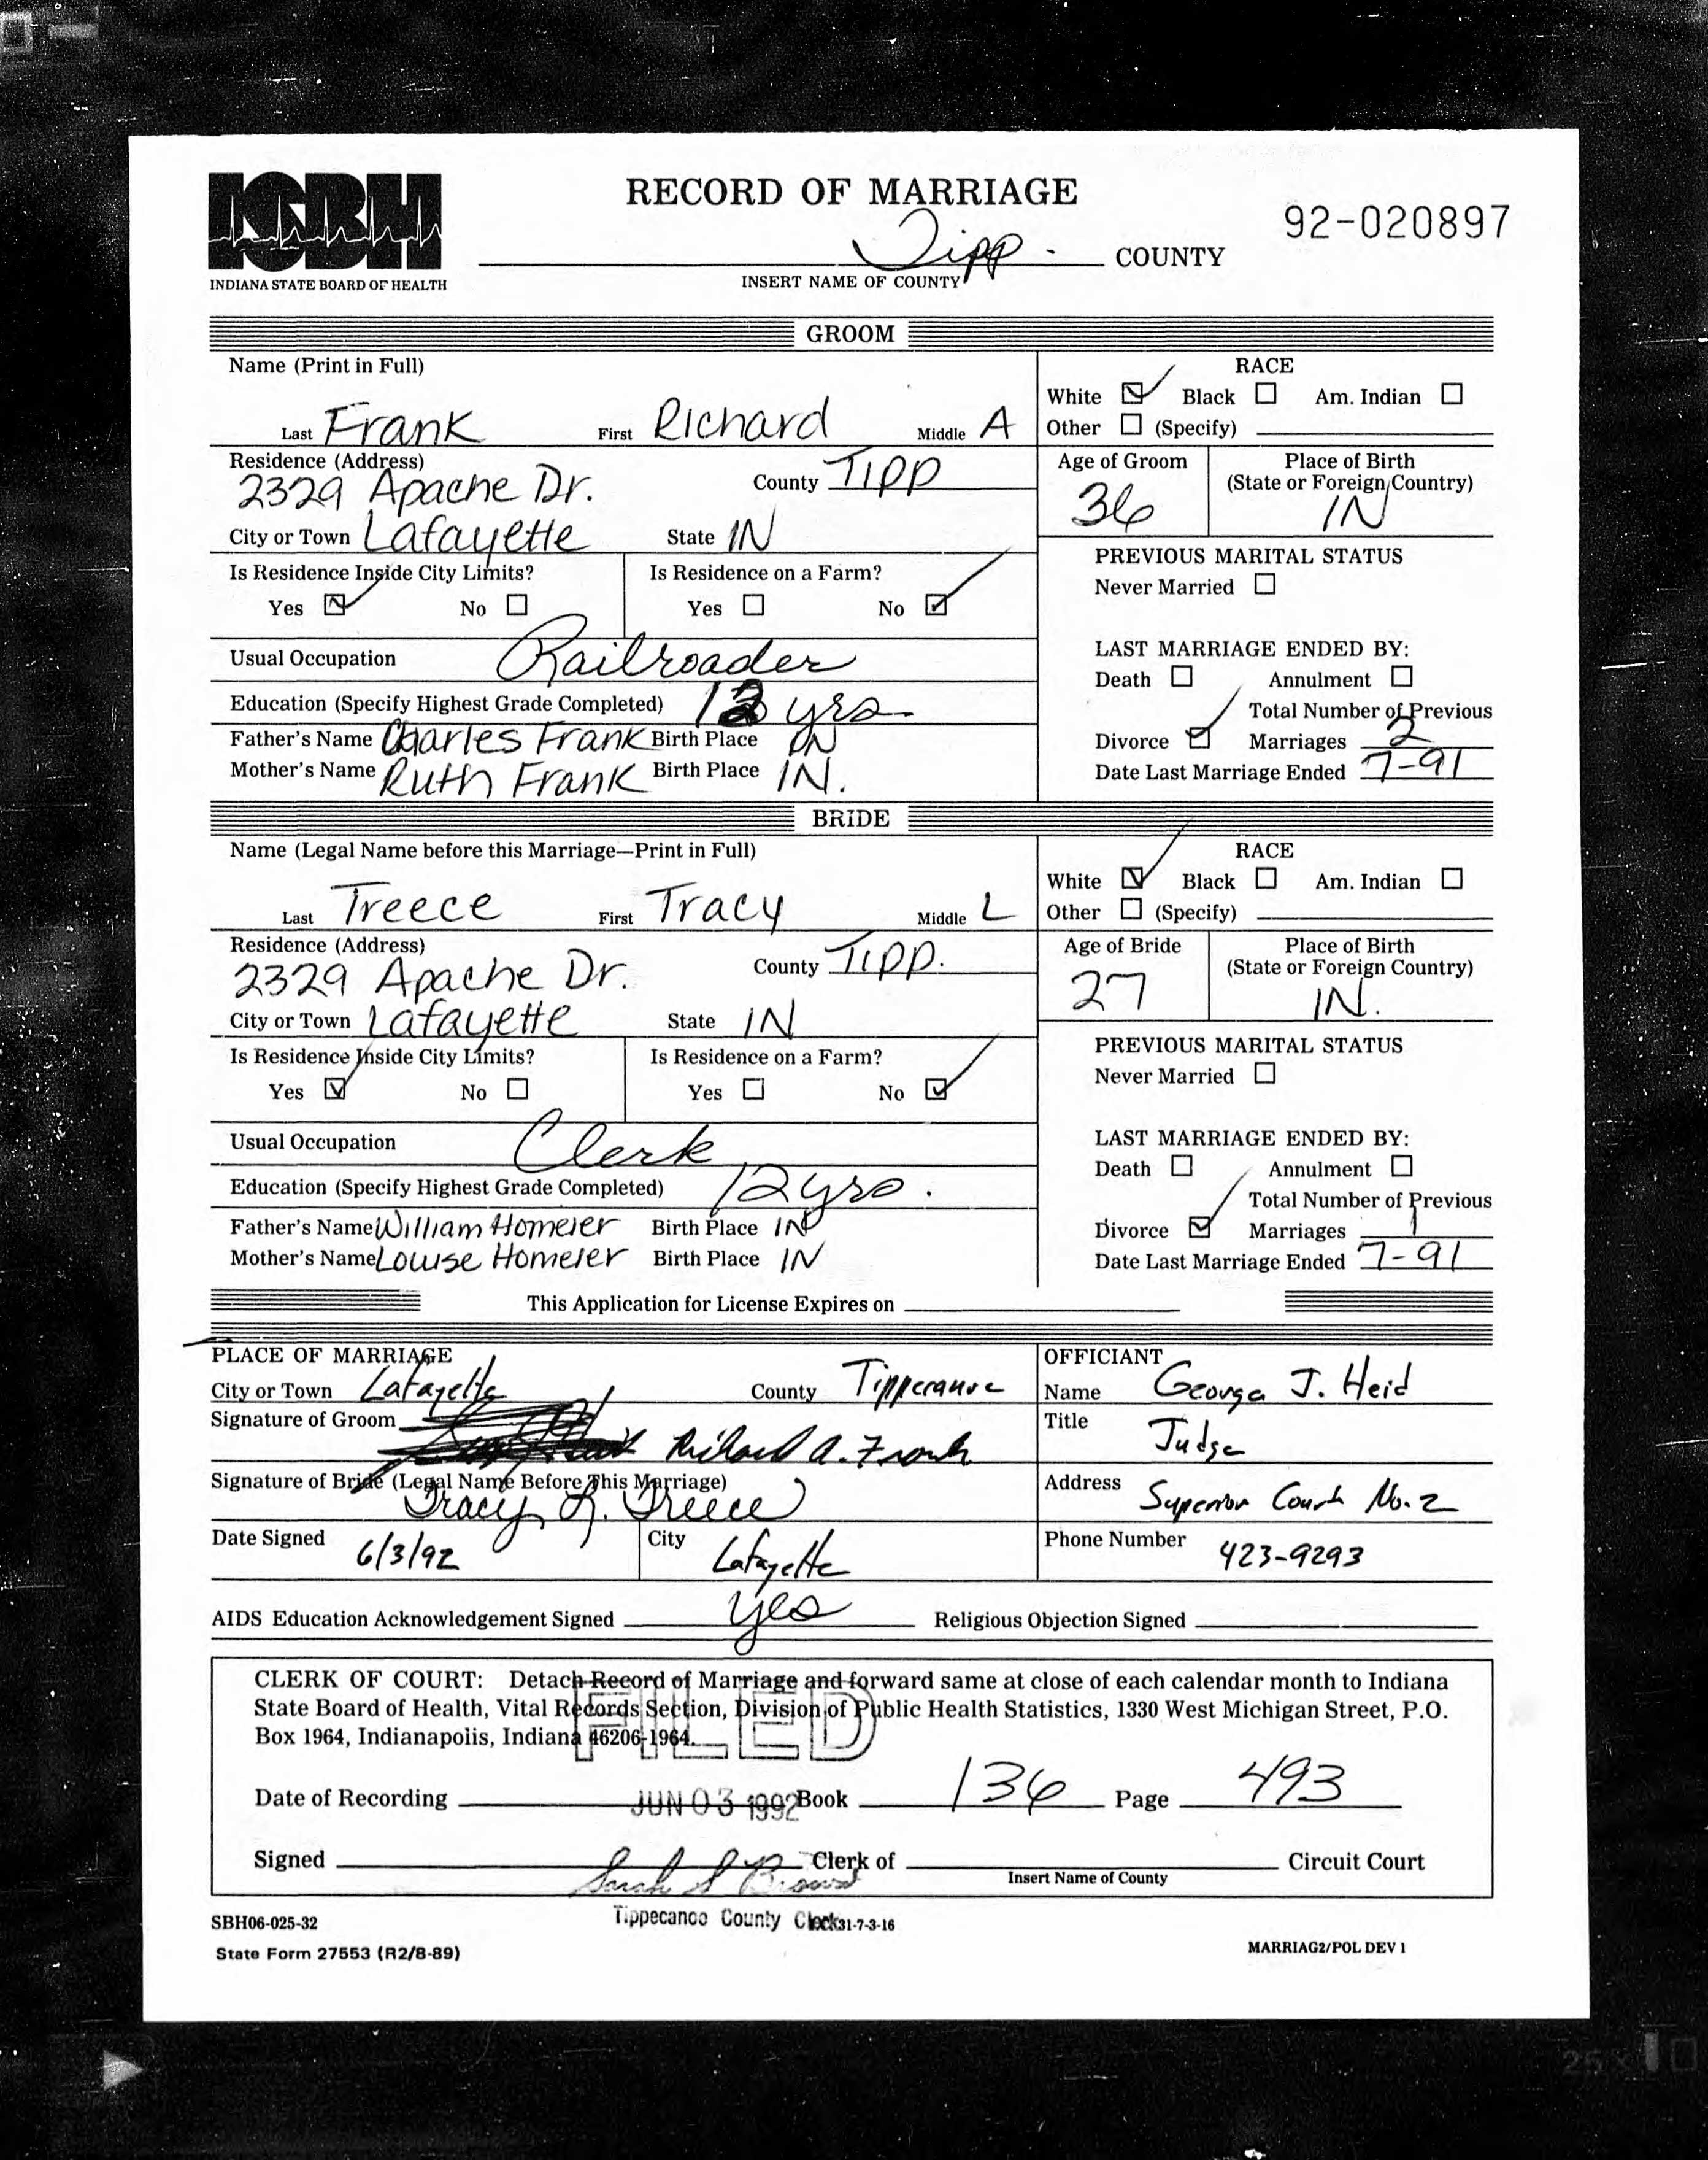 ISBH
INDIANA STATE BOARD OF HEALTH
RECORD OF MARRIAGE
92-020897
Tipp. COUNTY
INSERT NAME OF COUNTY
GROOM
Name (Print in Full)
Last Frank First Richard Middle A
RACE
White ☑ Black ☐ Am. Indian ☐
Other ☐ (Specify)
Residence (Address)
2329 Apache Dr. County Tipp
City or Town Lafayette State IN
Age of Groom
36
Place of Birth
(State or Foreign Country)
IN
Is Residence Inside City Limits?
Yes ☑ No ☐
Is Residence on a Farm?
Yes ☐ No ☑
PREVIOUS MARITAL STATUS
Never Married ☐
Usual Occupation Railroader
Education (Specify Highest Grade Completed) 12 yrs
Father's Name Charles Frank Birth Place IN
Mother's Name Ruth Frank Birth Place IN.
LAST MARRIAGE ENDED BY:
Death ☐ Annulment ☐
Total Number of Previous
Divorce ☑ Marriages 2
Date Last Marriage Ended 7-91
BRIDE
Name (Legal Name before this Marriage—Print in Full)
Last Treece First Tracy Middle L
RACE
White ☑ Black ☐ Am. Indian ☐
Other ☐ (Specify)
Residence (Address)
2329 Apache Dr. County Tipp.
City or Town Lafayette State IN
Age of Bride
27
Place of Birth
(State or Foreign Country)
IN.
Is Residence Inside City Limits?
Yes ☑ No ☐
Is Residence on a Farm?
Yes ☐ No ☑
PREVIOUS MARITAL STATUS
Never Married ☐
Usual Occupation Clerk
Education (Specify Highest Grade Completed) 12 yrs.
Father's Name William Homeier Birth Place IN
Mother's Name Louise Homeier Birth Place IN
LAST MARRIAGE ENDED BY:
Death ☐ Annulment ☐
Total Number of Previous
Divorce ☑ Marriages 1
Date Last Marriage Ended 7-91
This Application for License Expires on
PLACE OF MARRIAGE
City or Town Lafayette County Tippecanoe
Signature of Groom
Richard A. Frank
Signature of Bride (Legal Name Before This Marriage)
Tracy L. Treece
Date Signed 6/3/92 City Lafayette
OFFICIANT
Name George J. Heid
Title Judge
Address Superior Court No. 2
Phone Number 423-9293
AIDS Education Acknowledgement Signed yes Religious Objection Signed
CLERK OF COURT: Detach Record of Marriage and forward same at close of each calendar month to Indiana
State Board of Health, Vital Records Section, Division of Public Health Statistics, 1330 West Michigan Street, P.O.
Box 1964, Indianapolis, Indiana 46206-1964.
FILED
Date of Recording JUN 03 1992 Book 136 Page 493
Signed Sarah S Brown Clerk of Circuit Court
Insert Name of County
Tippecanoe County Clerk 31-7-3-16
SBH06-025-32
State Form 27553 (R2/8-89)
MARRIAG2/POL DEV 1
25X